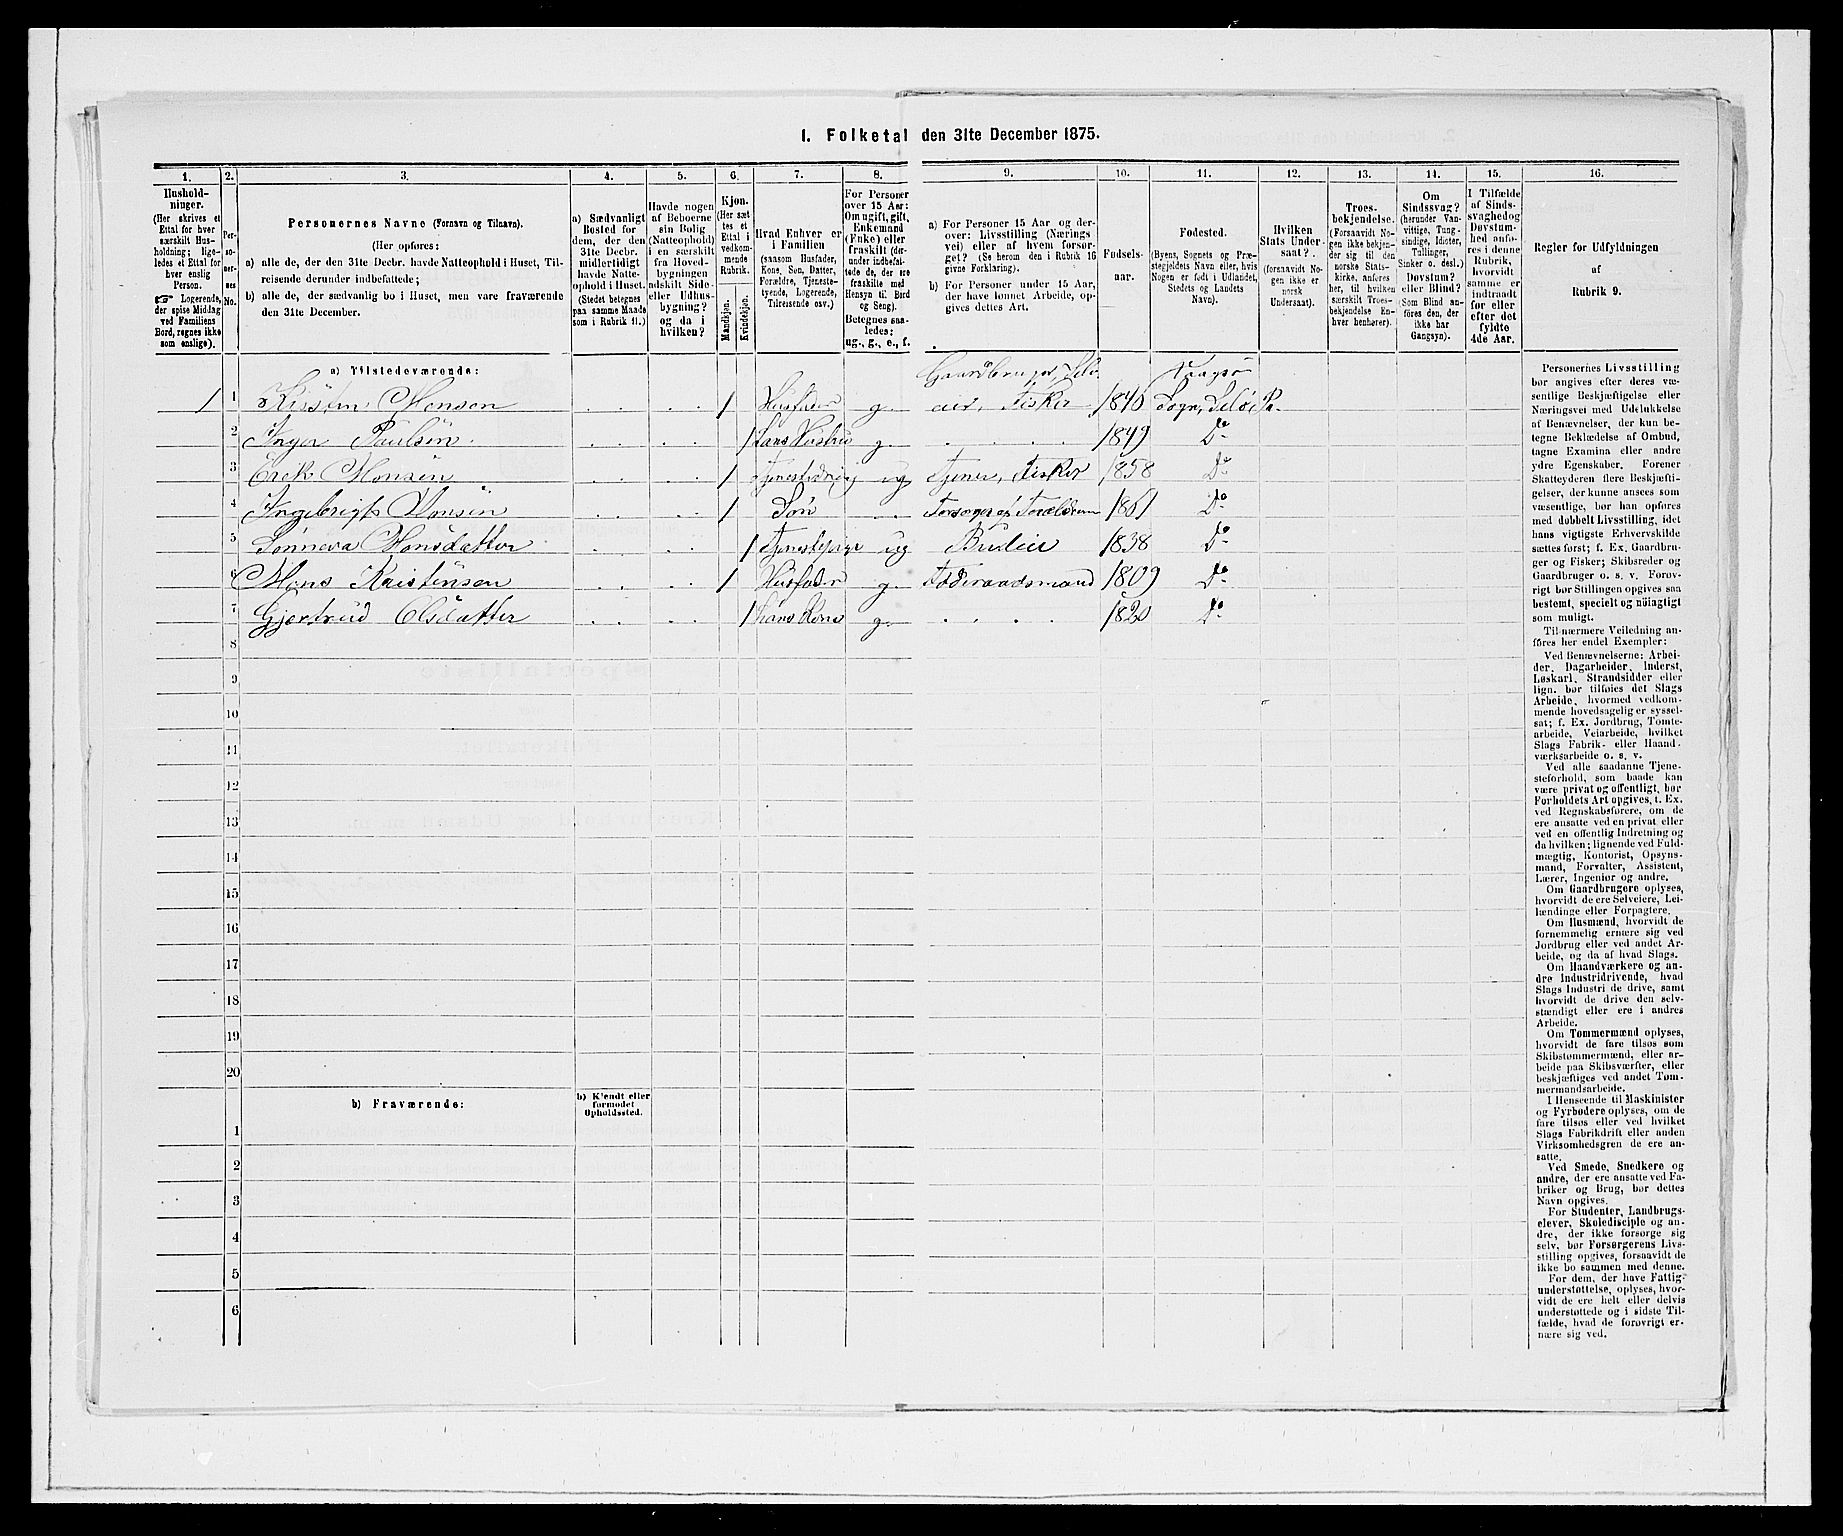 I. Folketal den 31te December 1875.
1. 2. 3. 4. 5. 6. 7. 8. 9. 10. 11. 12. 13. 14. 15. 16.
Hushold-
ninger.
(Her skrives et
Ettal for hver
særskilt Hus-
holdning; lige-
ledes et Ettal for
hver enslig
Person.
☞ Logerende,
der spise Middag
ved Familiens
Bord, regnes ikke
som enslige).
Per-
so-
ner-
nes
No.
Personernes Navne (Fornavn og Tilnavn).
(Her opføres:
a) alle de, der den 31te Decbr. havde Natteophold i Huset, Til-
reisende derunder indbefattede;
b) alle de, der sædvanlig bo i Huset, men vare fraværende
den 31te December.
a) Sædvanligt
Bosted for
dem, der den
31te Decbr.
midlertidigt
havde Natte-
ophold i Huset.
(Stedet betegnes
paa samme Maade
som i Rubrik 11.)
Havde nogen
af Beboerne
sin Bolig
(Natteophold)
i en særskilt
fra Hoved-
bygningen
adskilt Side-
eller Udhus-
bygning?
og da i
hvilken?
Kjøn.
(Her sæt
tes et
Ettal i
vedkom-
mende
Rubrik.
Mandkjøn.
Kvindekjøn.
Hvad Enhver er
i Familien
(saasom Husfader,
Kone, Søn, Datter,
Forældre, Tjeneste-
tyende, Logerende,
Tilreisende osv.)
For Personer
over 15 Aar:
Om ugift, gift,
Enkemand
(Enke) eller
fraskilt (der-
under indbefat-
tede de, der ere
fraskilte med
Hensyn til Bord
og Seng).
Betegnes saa-
ledes:
ug., g., e., f.
a) For Personer 15 Aar og der-
over: Livsstilling (Nærings
vei) eller af hvem forsør-
get? (Se herom den i Rubrik 16
givne Forklaring).
b) For Personer under 15 Aar,
der have lønnet Arbeide, op-
gives dettes Art.
Fødsels-
aar.
Fødested.
(Byens, Sognets og Præ-
stegjeldets Navn eller, hvis
Nogen er født i Udlandet,
Stedets og Landets
Navn).
Hvilken
Stats Under-
saat?
(forsaavidt No-
gen ikke er
norsk
Undersaat).
Troes-
bekjendelse.
(Forsaavidt No-
gen ikke bekjen-
der sig til den
norske Stats-
kirke, anføres
her, til hvilken
særskilt Troes-
bekjendelse En-
hver henhører).
Om
Sindssvag?
(herunder Van-
vittige, Tung-
sindige, Idioter,
Tullinger,
Sinker o. desl.)
Døvstum?
eller Blind?
(Som Blind an-
føres den, der
ikke har
Gangsyn).
I Tilfælde
af Sinds-
svaghed og
Døvstum-
hed anfø-
res i denne
Rubrik,
hvorvidt
samme er
indtraadt
før eller
efter det
fyldte
4de Aar.
Regler for Udfyldningen
af
Rubrik 9.
a) Tilstedeværende:
Gaardbruger, Selv- Vaagsø
1 1 Kristen Monsen 1 Husfader g. eier, Fisker 1846 Sogn, Selø Pr.
2 Inger Paulsen 1 hans Hustru g. 1849 Do
3 Erik Monsen 1 ug Tjener, Fisker 1858 Do
4 Ingebrigt Monsen 1 Søn Forsørges af Forældrene 1861 Do
5 Sønneva Monsdatter 1 Tjenestepige ug Budeie 1838 Do
6 Mons Kristensen 1 Husfader g. Føderaadsmand 1809 Do
7 Gjertrud Olsdatter 1 hans Kone g. 1820 Do
8
9
10
11
12
13
14
15
16
17
18
19
20
b) Fraværende:
b) Kjendt eller
formodet
Opholdssted.
1
2
3
4
5
6
Personernes Livsstilling
bør angives efter deres væ-
sentlige Beskjæftigelse eller
Næringsvei med Udelukkelse
af Benævnelser, der kun be-
tegne Beklædelse af Ombud,
tagne Examina eller andre
ydre Egenskaber. Forener
Skatteyderen flere Beskjæfti-
gelser, der kunne ansees som
væsentlige, bør han opføres
med dobbelt Livsstilling, idet
hans vigtigste Erhvervskilde
sættes først; f. Ex. Gaardbru-
ger og Fisker; Skibsreder og
Gaardbruger o. s. v. Forøv-
rigt bør Stillingen opgives saa
bestemt, specielt og nøiagtigt
som muligt.
Til nærmere Veiledning an-
føres her endel Exempler:
Ved Benævnelserne: Arbei-
der, Dagarbeider, Inderst,
Løskarl, Strandsidder eller
lign. bør tilføies det Slags
Arbeide, hvormed vedkom-
mende hovedsagelig er syssel-
sat; f. Ex. Jordbrug, Tomte-
arbeide, Veiarbeide, hvilket
Slags Fabrik- eller Haand-
værksarbeide o. s. v.
Ved alle saadanne Tjene-
steforhold, som baade kan
være privat og offentligt, bør
Forholdets Art opgives, t. Ex.
ved Regnskabsførere, om de
ere ansatte ved en privat eller
ved en offentlig Indretning og
da hvilken; lignende ved Fuld-
mægtig, Kontorist, Opsyns-
mand, Forvalter, Assistent,
Lærer, Ingeniør og andre.
Om Gaardbrugere oplyses,
hvorvidt de ere Selveiere, Lei-
lændinge eller Forpagtere.
Om Husmænd, hvorvidt de
fornemmelig ernære sig ved
Jordbrug eller ved andet Ar-
beide, og da af hvad Slags.
Om Haandværkere og an-
dre Industridrivende, hvad
Slags Industri de drive, samt
hvorvidt de drive den selv-
stændigt eller ere i andres
Arbeide.
Om Tømmermænd oplyses,
hvorvidt de fare tilsøs som
Skibstømmermænd, eller ar-
beide paa Skibsværfter, eller
beskjæftiges ved andet Tøm-
mermandsarbeide.
I Henseende til Maskinister
og Fyrbødere oplyses, om de
fare tilsøs eller ved hvilket
Slags Fabrikdrift eller anden
Virksomhedsgren de ere an-
satte.
Ved Smede, Snedkere og
andre, der ere ansatte ved Fa-
briker og Brug, bør dettes
Navn opgives.
For Studenter, Landbrugs-
elever, Skoledisciple og an-
dre, der ikke forsørge sig
selv, bør Forsørgerens Livs-
stilling opgives, forsaavidt de
ikke bo sammen med denne.
For dem, der have Fattig-
understøttelse, oplyses, hvor-
vidt de ere helt eller delvis
understøttede og i sidste Til-
fælde, hvad de forøvrigt er-
nære sig ved.